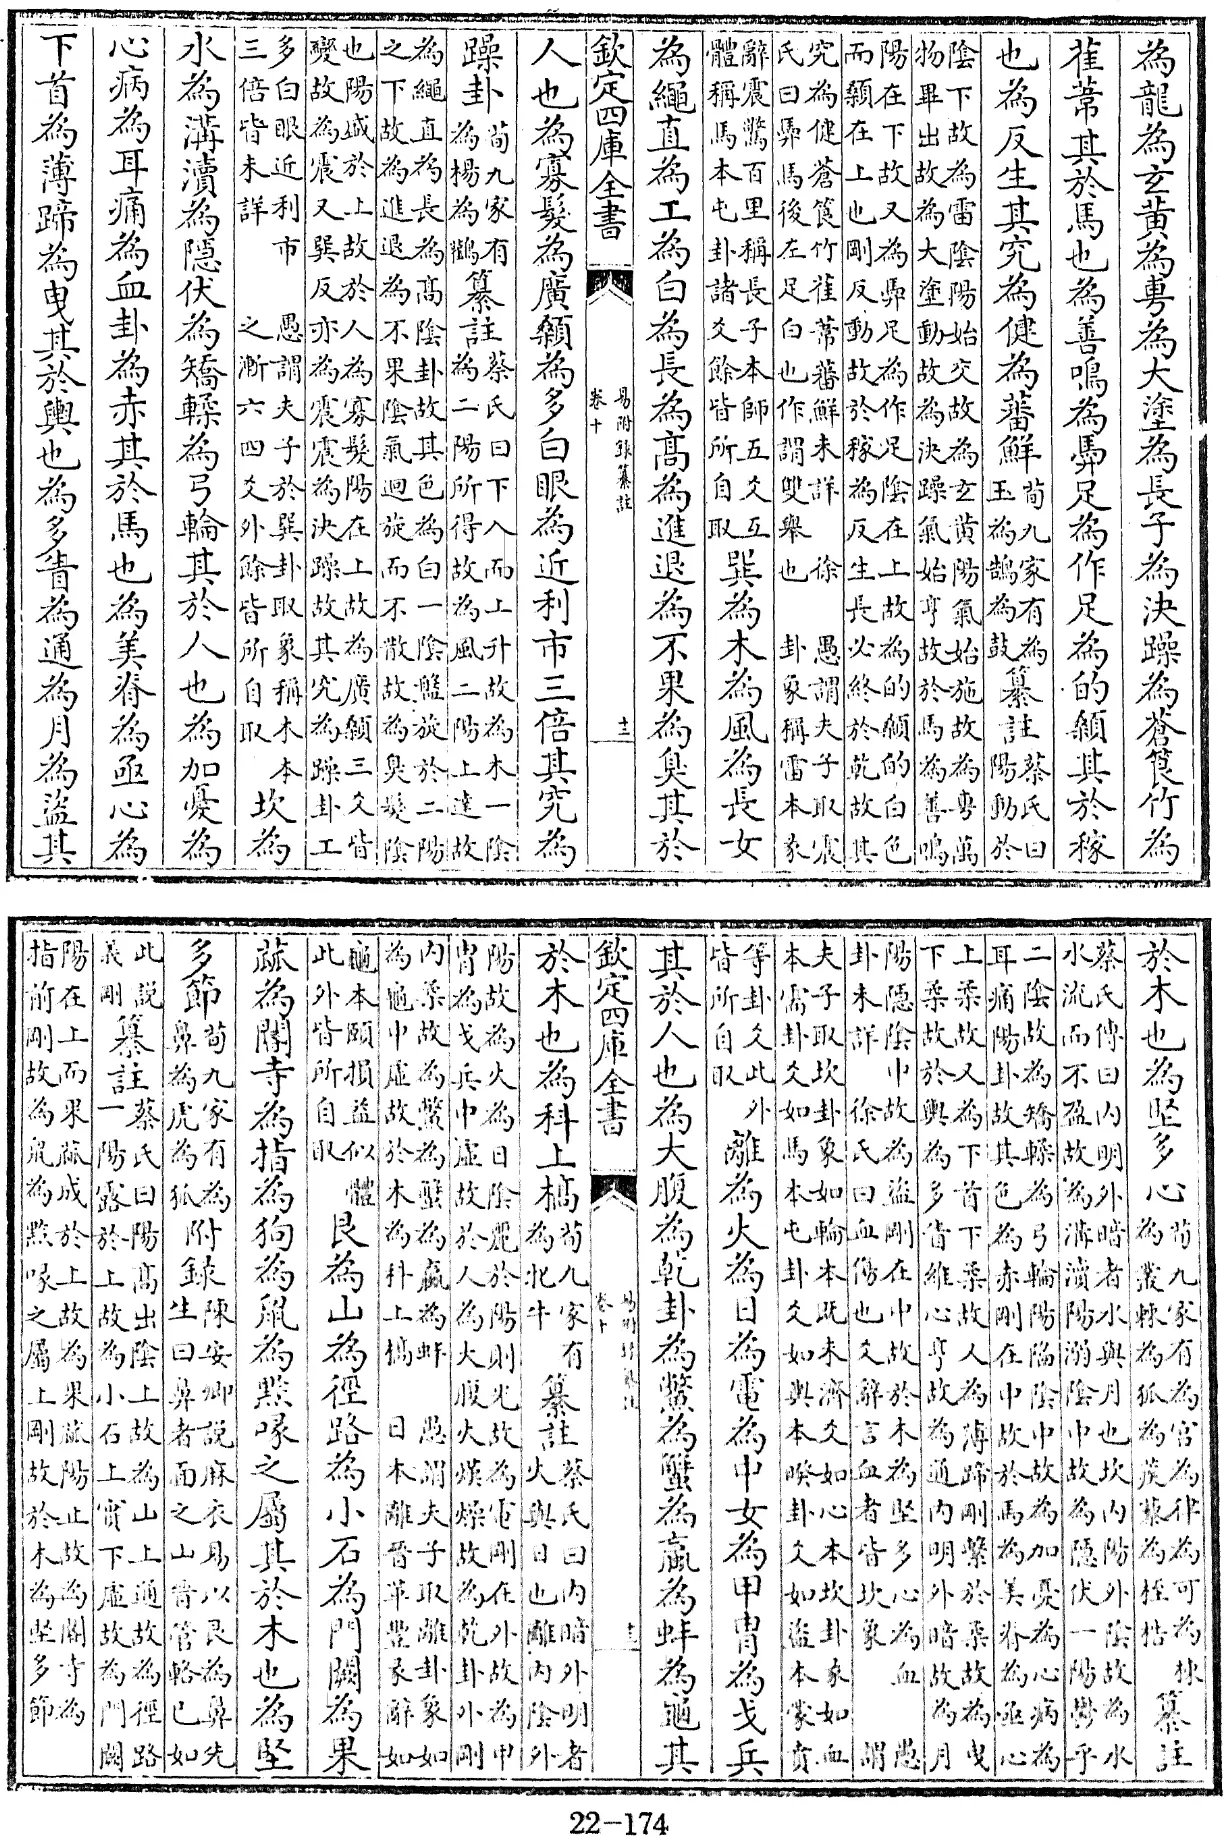 為龍為玄黄為旉為大塗為長子為決躁為蒼筤竹為
萑葦其於馬也為善鳴為馵足為作足為的顙其於稼
也為反生其究為健為蕃鮮荀九家有為玉為鵠為鼓纂註蔡氏曰陽動於
陰下故為雷陰陽始交故為玄黄陽氣始施故為旉萬
物畢出故為大塗動故為決躁氣始亨故於馬為善鳴
陽在下故又為馵足為作足陰在上故為的顙的白色
而顙在上也剛反動故於稼為反生長必終於乾故其
究為健蒼筤竹萑葦蕃鮮未詳 徐
氏曰馵馬後左足白也作謂雙舉也 愚謂夫子取震
卦象稱雷本彖
辭震驚百里稱長子本師五爻互
體稱馬本屯卦諸爻餘皆所自取巽為木為風為長女
為繩直為工為白為長為高為進退為不果為臭其於
欽定四庫全書 易附録纂註 卷十 十三
人也為寡髮為廣顙為多白眼為近利市三倍其究為
躁卦荀九家有為楊為鸛纂註蔡氏曰下入而上升故為木一陰
為二陽所得故為風二陽上達故
為繩直為長為高陰卦故其色為白一陰盤旋於二陽
之下故為進退為不果陰氣迴旋而不散故為臭髮陰
也陽盛於上故於人為寡髮陽在上故為廣顙三爻皆
變故為震又巽反亦為震震為決躁故其究為躁卦工
多白眼近利市
三倍皆未詳 愚謂夫子於巽卦取象稱木本
之漸六四爻外餘皆所自取坎為
水為溝瀆為隱伏為矯輮為弓輪其於人也為加憂為
心病為耳痛為血卦為赤其於馬也為美脊為亟心為
下首為薄蹄為曳其於輿也為多眚為通為月為盜其
於木也為堅多心荀九家有為宫為律為可為棟
為叢棘為狐為蒺藜為桎梏纂註
蔡氏傳曰内明外暗者水與月也坎内陽外陰故為水
水流而不盈故為溝瀆陽溺陰中故為隱伏一陽鬱乎
二陰故為矯輮為弓輪陽陷陰中故為加憂為心病為
耳痛陽卦故其色為赤剛在中故於馬為美脊為亟心
上柔故又為下首下柔故人為薄蹄剛繫於柔故為曳
下柔故於輿為多眚維心亨故為通内明外暗故為月
陽隱陰中故為盜剛在中故於木為堅多心為血
卦未詳 徐氏曰血傷也爻辭言血者皆坎象 愚謂
夫子取坎卦象如輪本既未濟爻如心本坎卦彖如血
本需卦爻如馬本屯卦爻如輿本睽卦爻如盜本蒙賁
等卦爻此外
皆所自取離為火為日為電為中女為甲冑為戈兵
其於人也為大腹為乾卦為鱉為蟹為蠃為蚌為龜其
欽定四庫全書 易附録纂註 卷十 十三
於木也為科上槁荀九家有為牝牛纂註蔡氏曰内暗外明者
火與日也離内陰外
陽故為火為日陰麗於陽則光故為電剛在外故為甲
冑為戈兵中虛故於人為大腹火熯燥故為乾卦外剛
内柔故為鱉為蟹為蠃為蚌
為龜中虛故於木為科上槁 愚謂夫子取離卦象如
日本離晉革豐彖辭如
龜本頤損益似體
此外皆所自取艮為山為徑路為小石為門闕為果
蓏為閽寺為指為狗為鼠為黔喙之屬其於木也為堅
多節荀九家有為鼻為虎為狐附録陳安卿說麻衣易以艮為鼻先
生曰鼻者面之山晉管輅已如
此說
義剛纂註蔡氏曰陽高出陰上故為山上通故為徑路
一陽露於上故為小石上實下虛故為門闕
陽在上而果蓏成於上故為果蓏陽止故為閽寺為
指前剛故為鼠為黔喙之屬上剛故於木為堅多節
22-174